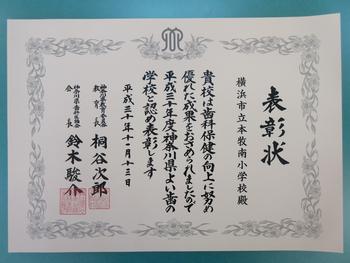 表彰状
横浜市立本牧南小学校殿
貴校は歯科保健の向上に努め
優れた成果をおさめられましたので
平成三十年度神奈川県よい歯の
学校と認め表彰します
平成三十年十一月十三日
神奈川県教育委員会
教育長 桐谷次郎
神奈川県歯科医師会
会長 鈴木駿介